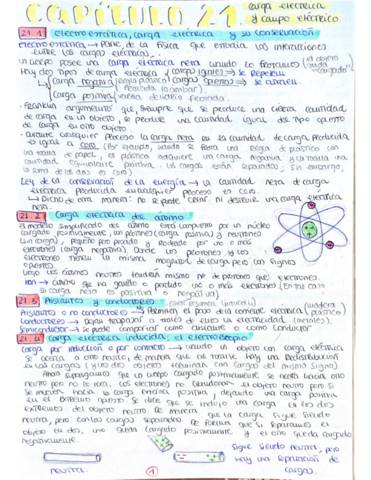 CAPÍTULO 21. carga eléctrica
y campo eléctrico
21.1 electrostática, carga eléctrica y su conservación
electrostática → parte de la física que estudia las interacciones
entre las cargas eléctricas.
un cuerpo posee una carga eléctrica neta cuando lo frotamos (el objeto
Hay dos tipos de carga eléctrica (cargas iguales → se repelen "cargado")
carga negativa (regla plástico) cargas opuestas → se atraen.
carga positiva
Franklin argumentó que, siempre que se produce una cierta cantidad
de carga en un objeto, se produce una cantidad igual del tipo opuesto
de carga en otro objeto
durante cualquier proceso la carga neta es la cantidad de carga producida
es igual a cero (Por ejemplo, cuando se frota una regla de plástico con
una toalla de papel, el plástico adquiere una carga negativa y la toalla una
cantidad equivalente positiva. Las cargas están separadas; sin embargo,
la suma de las dos es cero).
Ley de la conservación de la energía → la cantidad neta de carga
eléctrica producida en cualquier proceso es cero
→ Dicho de otra manera: no se puede crear ni destruir una carga eléctrica
neta.
21.2 Carga eléctrica del átomo
El modelo simplificado del átomo está compuesto por un núcleo
cargado positivamente, con protones (carga positiva) y neutrones
(sin carga), pequeño pero pesado y rodeado por uno o más
electrones (carga negativa). Donde los protones y los
electrones tienen la misma magnitud de carga pero con signos
opuestos
ion → átomo que ha ganado o perdido uno o más electrones
su carga neta es positiva o negativa)
21.3 Aislantes y conductores
Aislantes o no conductores → Impiden el paso de la corriente eléctrica (madera, plástico)
Conductores → a través de ellos la electricidad (metales).
Semiconductor → se puede comportar como aislante o como conductor
21.4 Carga eléctrica inducida, el electroscopio
carga por inducción o por contacto → cuando un objeto con carga eléctrica
se acerca a otro neutro, de manera que al tocarse hay una redistribución
en las cargas (y los dos objetos terminan con cargas del mismo signo)
Ahora supongamos que un cuerpo cargado positivamente se acerca hacia otro
neutro pero no se toca, los electrones no abandonan el objeto neutro pero si
se mueven hacia la carga positiva, dejando una carga positiva
en el extremo opuesto se dice que se indujo una carga en los dos
extremos del objeto neutro de manera que la carga sigue siendo
neutro, pero con las cargas separadas de forma que si separamos el
objeto en dos, uno queda cargado positivamente y el otro queda cargado
negativamente.
neutro.
Sigue siendo neutro, pero
hay una separación de
cargas.
1